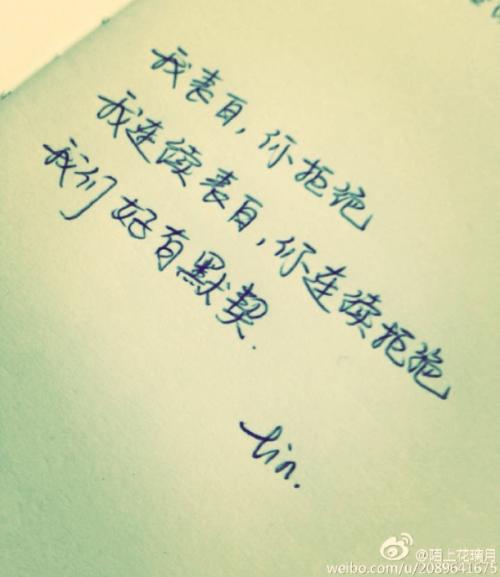 我表白,你拒绝
我连续表白,你连续拒绝
我们好有默契.
lin.
@陌上花璃月
weibo.com/u/2089641675